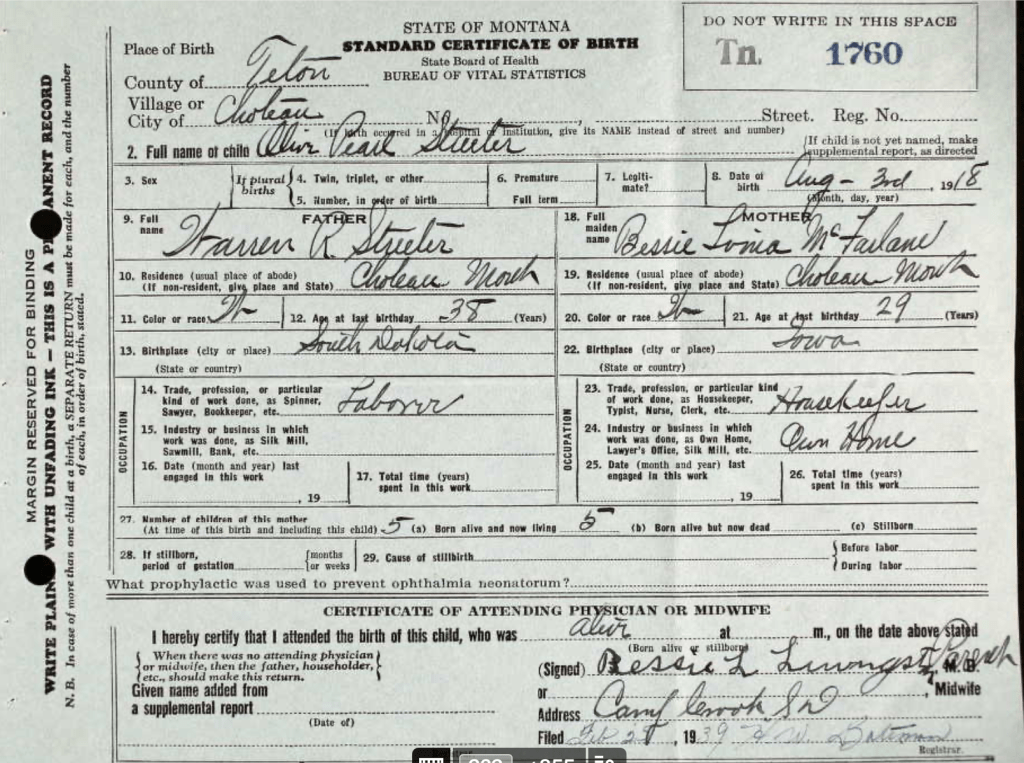 STATE OF MONTANA
STANDARD CERTIFICATE OF BIRTH
State Board of Health
BUREAU OF VITAL STATISTICS
DO NOT WRITE IN THIS SPACE
Tn. 1760
Place of Birth
County of Teton
Village or
City of Choteau No. , Street. Reg. No.
(If birth occurred in a hospital or institution, give its NAME instead of street and number)
2. Full name of child Olive Pearl Streeter
(If child is not yet named, make
supplemental report, as directed
3. Sex
If plural
births
4. Twin, triplet, or other
5. Number, in order of birth
6. Premature
Full term
7. Legiti-
mate?
8. Date of
birth Aug - 3rd , 1918
(Month, day, year)
9. Full
name
FATHER
Warren R. Streeter
18. Full
maiden
name
MOTHER
Bessie McFarlane
10. Residence (usual place of abode)
(If non-resident, give place and State) Choteau Mont
19. Residence (usual place of abode)
(If non-resident, give place and State) Choteau Mont
11. Color or race W 12. Age at last birthday 38 (Years)
20. Color or race W 21. Age at last birthday 29 (Years)
13. Birthplace (city or place) South Dakota
(State or country)
22. Birthplace (city or place) Iowa
(State or country)
OCCUPATION
14. Trade, profession, or particular
kind of work done, as Spinner,
Sawyer, Bookkeeper, etc. Laborer
15. Industry or business in which
work was done, as Silk Mill,
Sawmill, Bank, etc.
16. Date (month and year) last
engaged in this work
, 19
17. Total time (years)
spent in this work
OCCUPATION
23. Trade, profession, or particular kind
of work done, as Housekeeper,
Typist, Nurse, Clerk, etc. Housekeeper
24. Industry or business in which
work was done, as Own Home,
Lawyer's Office, Silk Mill, etc. Own Home
25. Date (month and year) last
engaged in this work
, 19
26. Total time (years)
spent in this work
27. Number of children of this mother
(At time of this birth and including this child) 5 (a) Born alive and now living 5 (b) Born alive but now dead (c) Stillborn
28. If stillborn,
period of gestation
{months
or weeks
29. Cause of stillbirth
Before labor
During labor
What prophylactic was used to prevent ophthalmia neonatorum?
CERTIFICATE OF ATTENDING PHYSICIAN OR MIDWIFE
I hereby certify that I attended the birth of this child, who was alive at m., on the date above stated
(Born alive or stillborn)
When there was no attending physician
or midwife, then the father, householder,
etc., should make this return.
(Signed) Bessie L Parent, M. D.
or , Midwife
Given name added from
a supplemental report
(Date of)
Address Camp Crook SD
Filed Feb , 1939
Registrar.
MARGIN RESERVED FOR BINDING
WRITE PLAIN WITH UNFADING INK — THIS IS A P ANENT RECORD
N. B. In case of more than one child at a birth, a SEPARATE RETURN must be made for each, and the number
of each, in order of birth, stated.